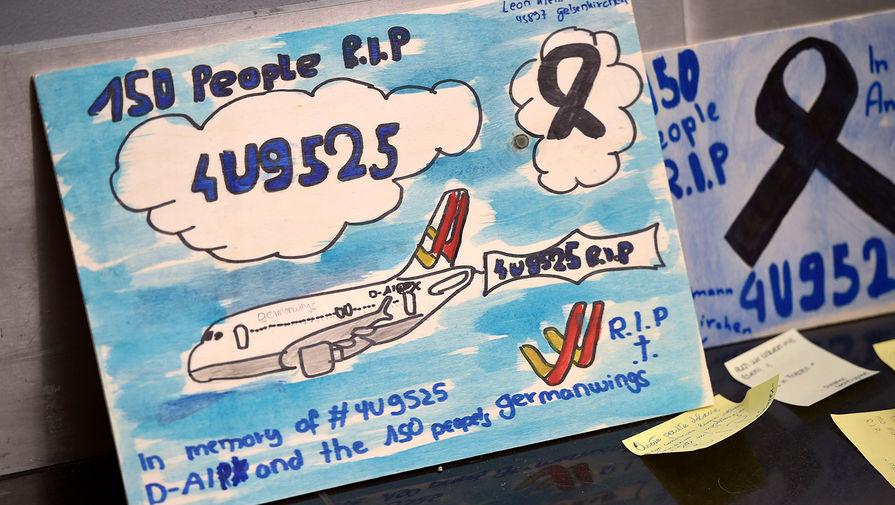 Leon
45897 Gelsenkirchen
150 People R.I.P
4U9525
germanwings
D-AIPX
4U9525 R.I.P
R.I.P
In memory of #4U9525
D-AIPX and the 150 people's germanwings
150
eople
R.I.P
In
An
mann
rchen
4U952